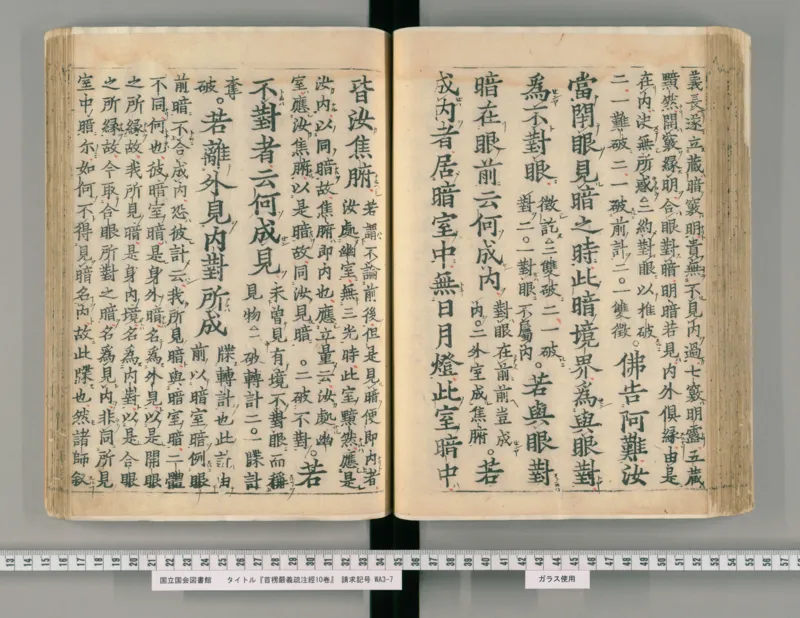 義長遂立藏暗竅明責無不見内過七竅明露五藏
黤然開竅緣明合眼對暗明暗若見内外俱緣由是
在内決無所惑。三約對眼以推破
二一難破二一破前計二。一雙徵
。佛告阿難汝
當閉眼見暗之時此暗境界為與眼對
為不對眼
徵詑。二雙破二一破
對二。一對眼不屬内
。若與眼對
暗在眼前云何成内
對眼在前前豈成
内。二外室成焦腑
。若
成内者居暗室中無日月燈此室暗中
皆汝焦腑
若謂不論前後但是見暗便即内者
汝處幽室無三光時此室黤然應是
汝内以同暗故焦腑即内也應立量云汝處幽
室應汝焦腑以是暗故同汝見暗。二破不對
。若
不對者云何成見
未曾見有境不對眼而稱
見物。二破轉計二。一牒計
奪
破
。若離外見内對所成
牒轉計也此計由
前以暗室暗例眼
前暗不合成内恐彼計云我所見暗與暗室暗二體
不同何也彼暗室暗是身外暗名為外見以是開眼
之所緣故我所見暗是身内境名為内對以是合眼
之所緣故今取合眼所對之暗名為見内非同所見
室中暗尓如何不得見暗名内故此牒也然諸師敘
国立国会図書館 タイトル『首楞嚴義疏注經10巻』 請求記号 WA3-7
ガラス使用